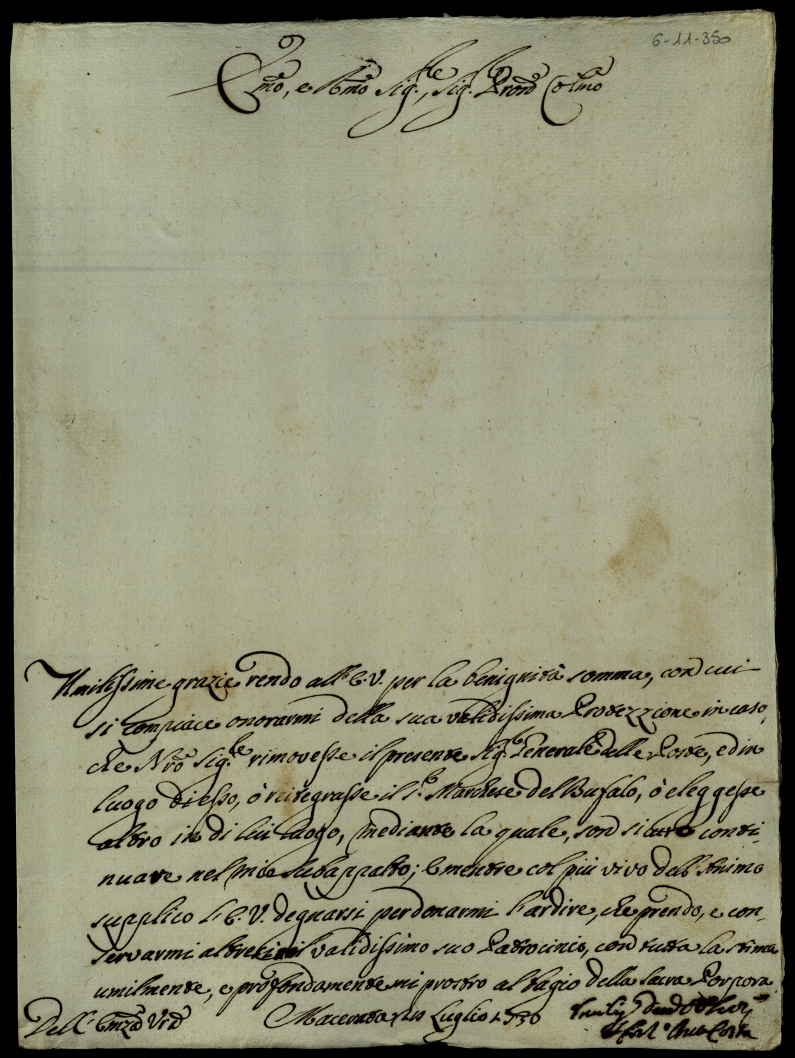 6-11-350
Emo, e Rmo Sig.re, Sig.re Pron Colmo
Umilissime grazie rendo all'E.V. per la benignità somma, con cui
si compiace onorarmi della sua validissima Protezzione in caso,
che Nro Sig.re rimovesse il presente Sig.re Generale delle Poste, ed in
luogo di esso, ò reitegrasse il S.r Marchese del Bufalo, ò eleggesse
altro in di lui luogo, mediante la quale, son sicuro conti-
nuare nel mio subappalto; E mentre col più vivo dell'Animo
supplico l'E.V. degnarsi perdonarmi l'ardire, che prendo, e con-
servarmi altresi il validissimo suo Patrocinio, con tutta la stima
umilmente, e profondamente mi prostro al bagio della Sacra Porpora
Dell'Emza Vra Macerata Luglio 1730